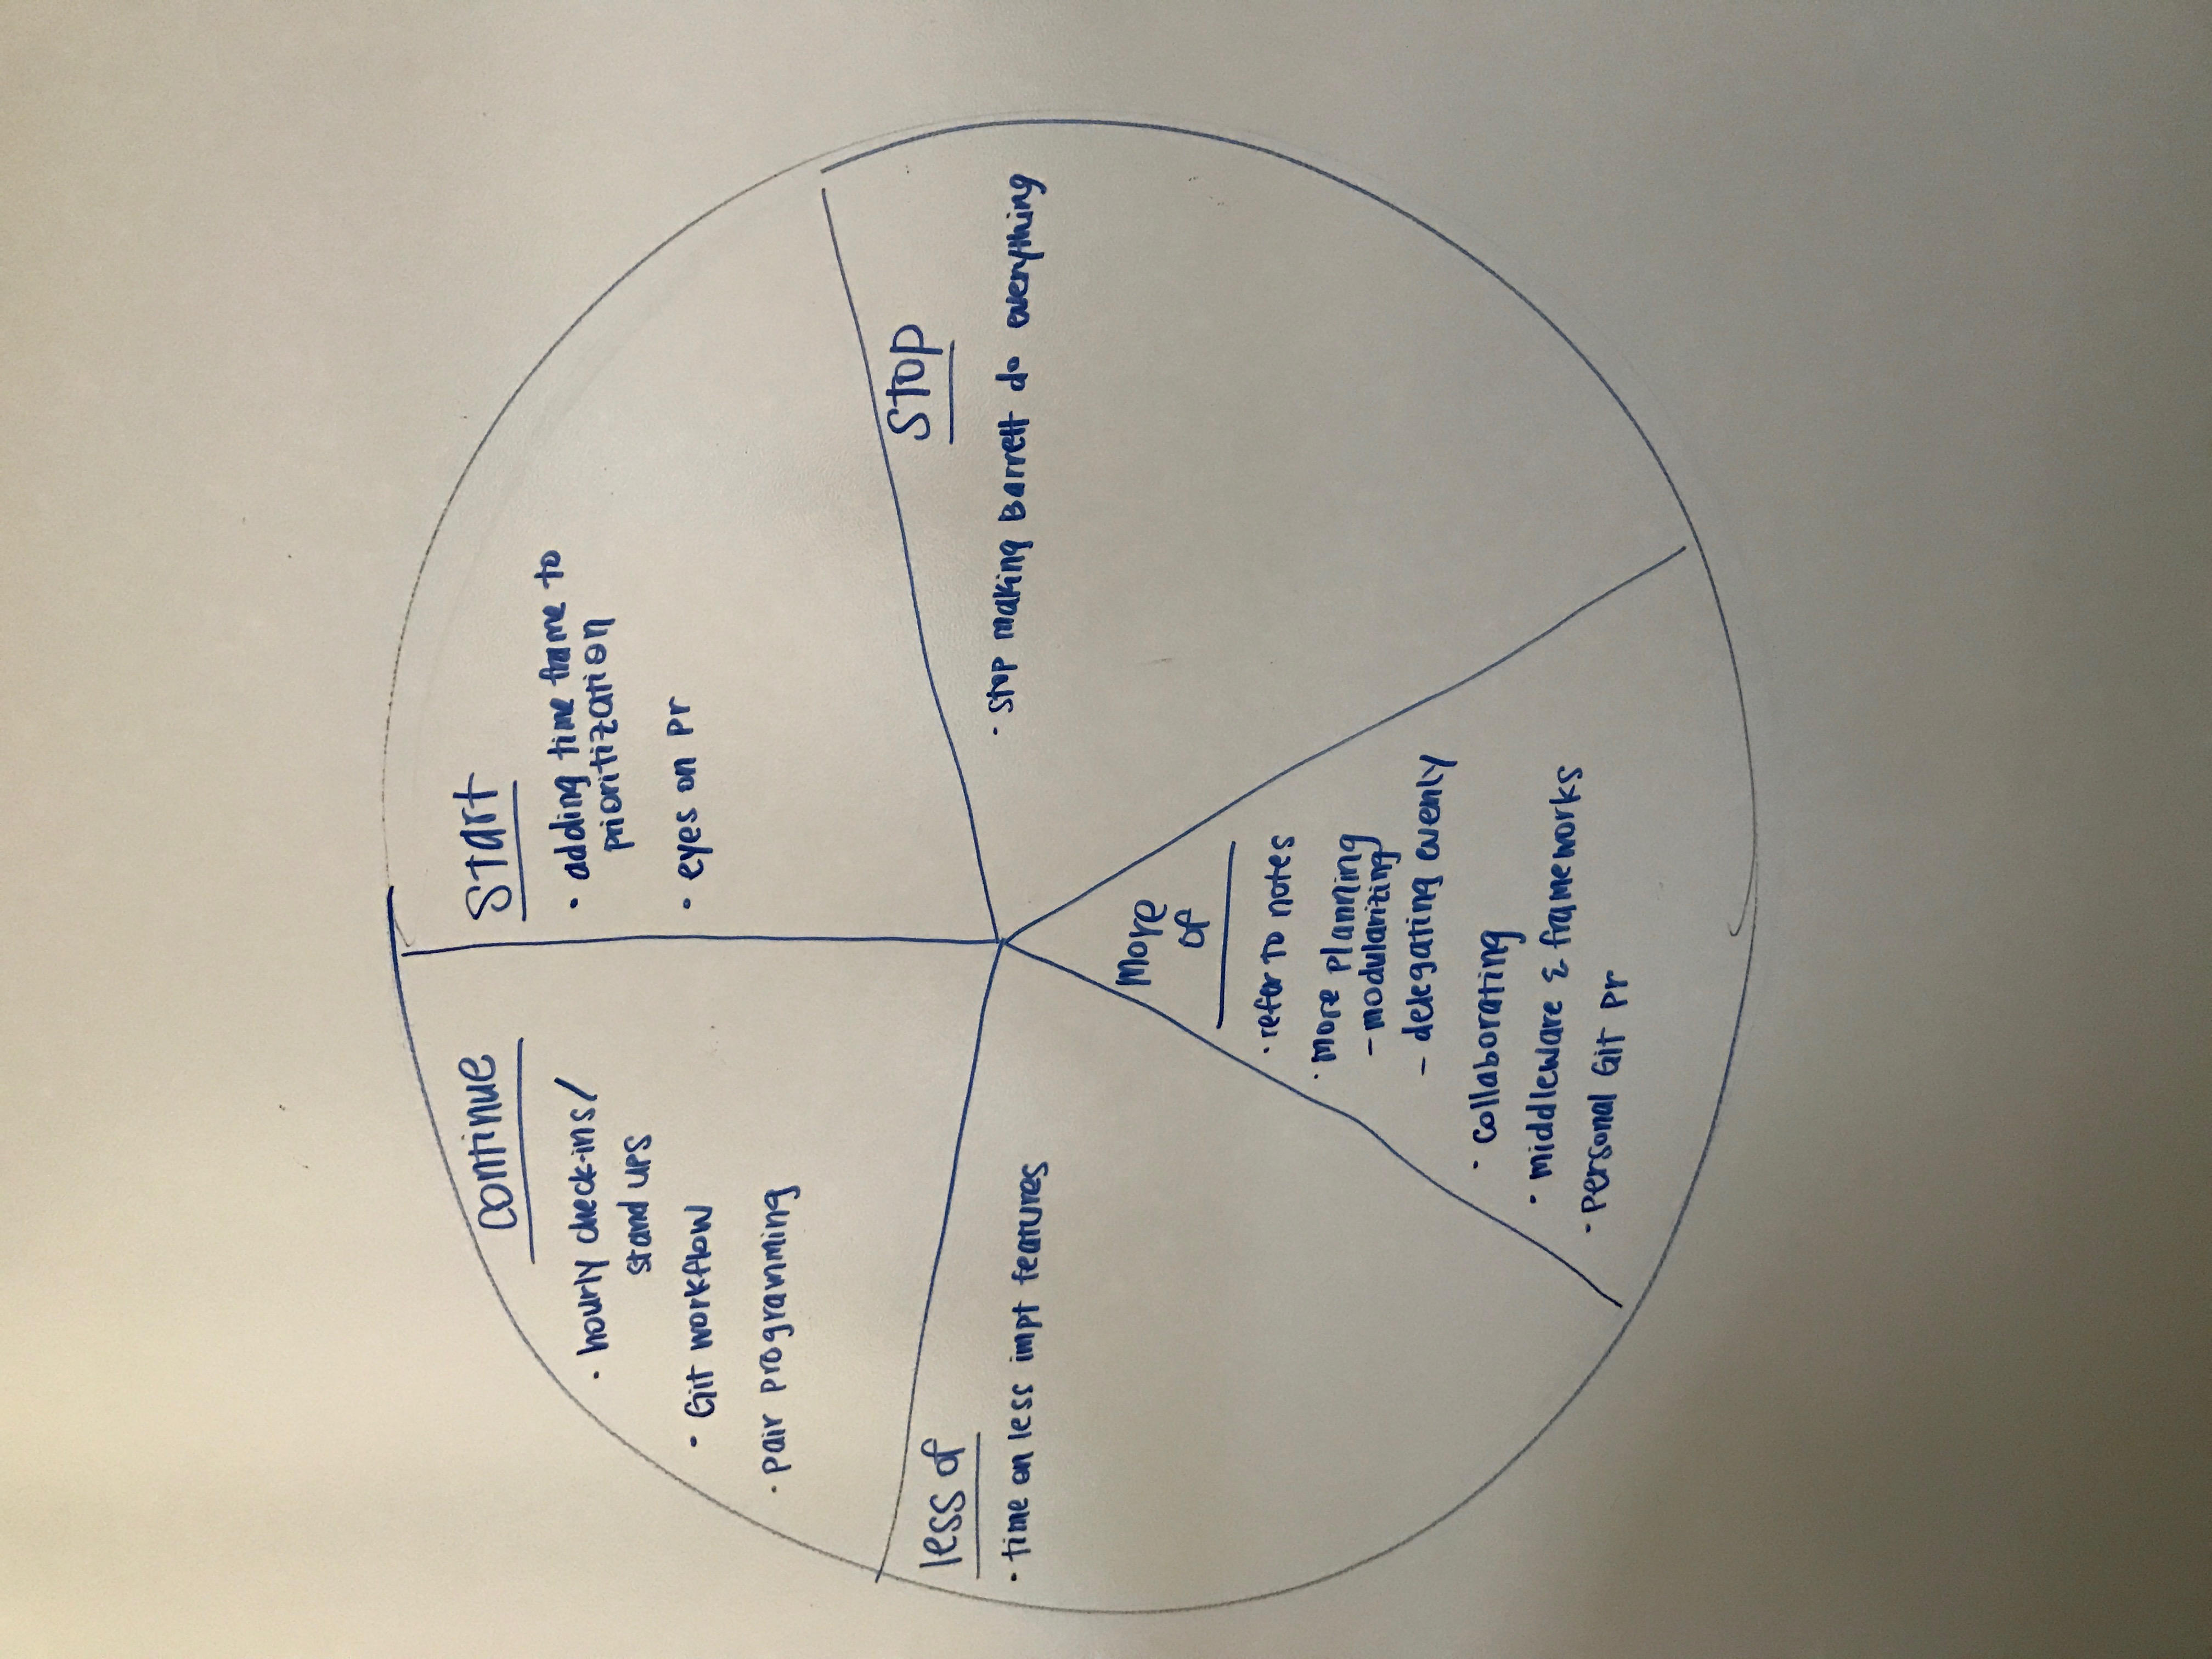 continue
· hourly check-ins/
stand ups
- Git workflow
· pair programming
Start
· adding time frame to
prioritization
· eyes on Pr
Stop
· Stop making Barrett do everything
less of
· time on less impt features
More
of
· refer to notes
· more planning
- modularizing
- delegating evenly
· collaborating
· middleware & frameworks
· personal Git Pr